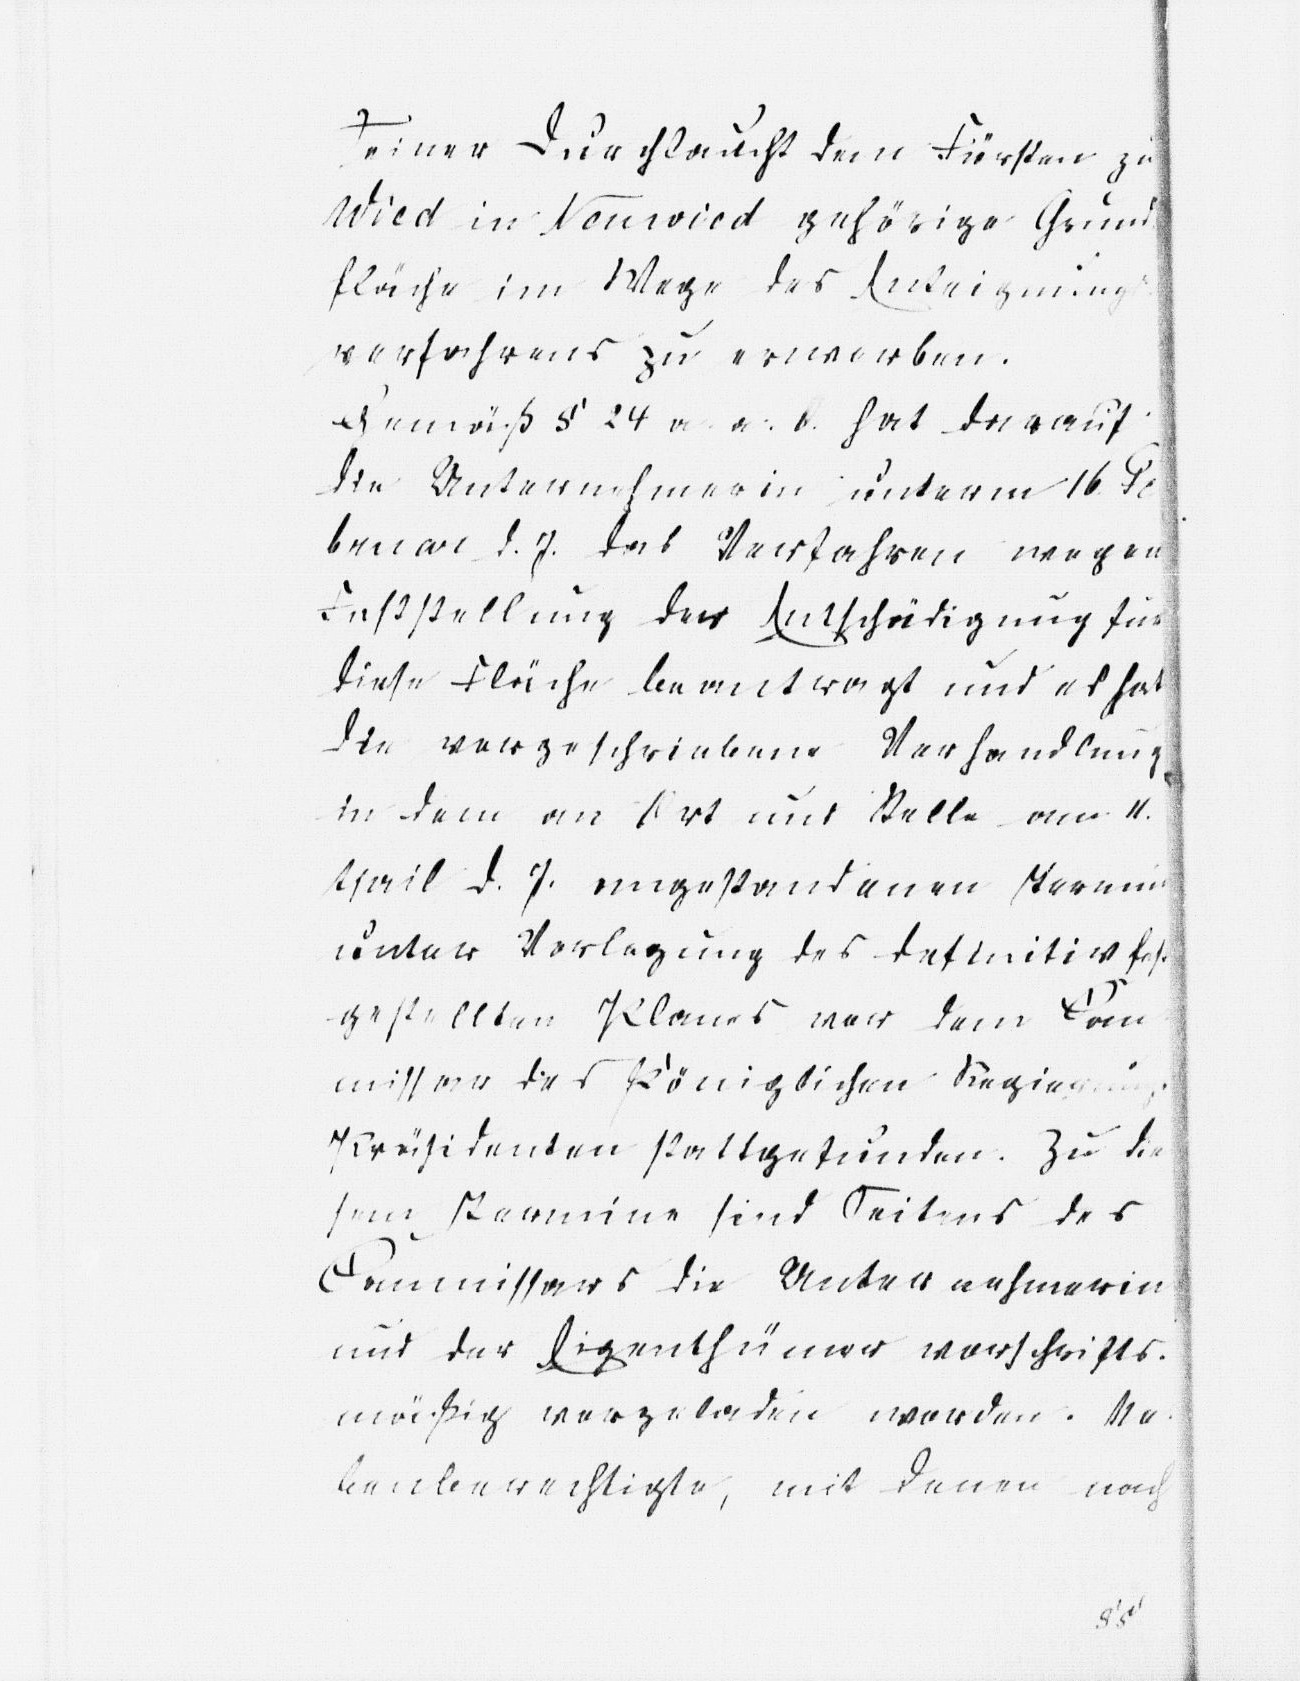 Seiner Durchlaucht dem Fürsten zu
Wied in Neuwied gehörige Grund-
fläche im Wege des Enteignungs-
verfahrens zu erwerben.
Gemäß § 24 a. a. O. hat darauf
die Unternehmerin unterm 16. Fe-
bruar d. J. das Verfahren wegen
Feststellung der Entschädigung für
diese Fläche beantragt und es hat
die vorgeschriebene Verhandlung
in dem an Ort und Stelle am 11.
April d. J. angestandenen Termin
unter Vorlegung des definitiv fest-
gestellten Planes vor dem Com-
missar des Königlichen Regierungs-
Präsidenten stattgefunden. Zu die-
sem Termine sind Seitens des
Commissars die Unternehmerin
und der Eigenthümer vorschrifts-
mäßig vorgeladen worden. Ne-
benberechtigte, mit denen nach
§§